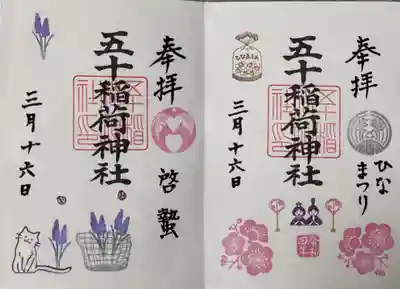 奉拝
啓蟄
五十稲荷神社
三月十六日
奉拝
ひな
まつり
五十稲荷神社
三月十六日